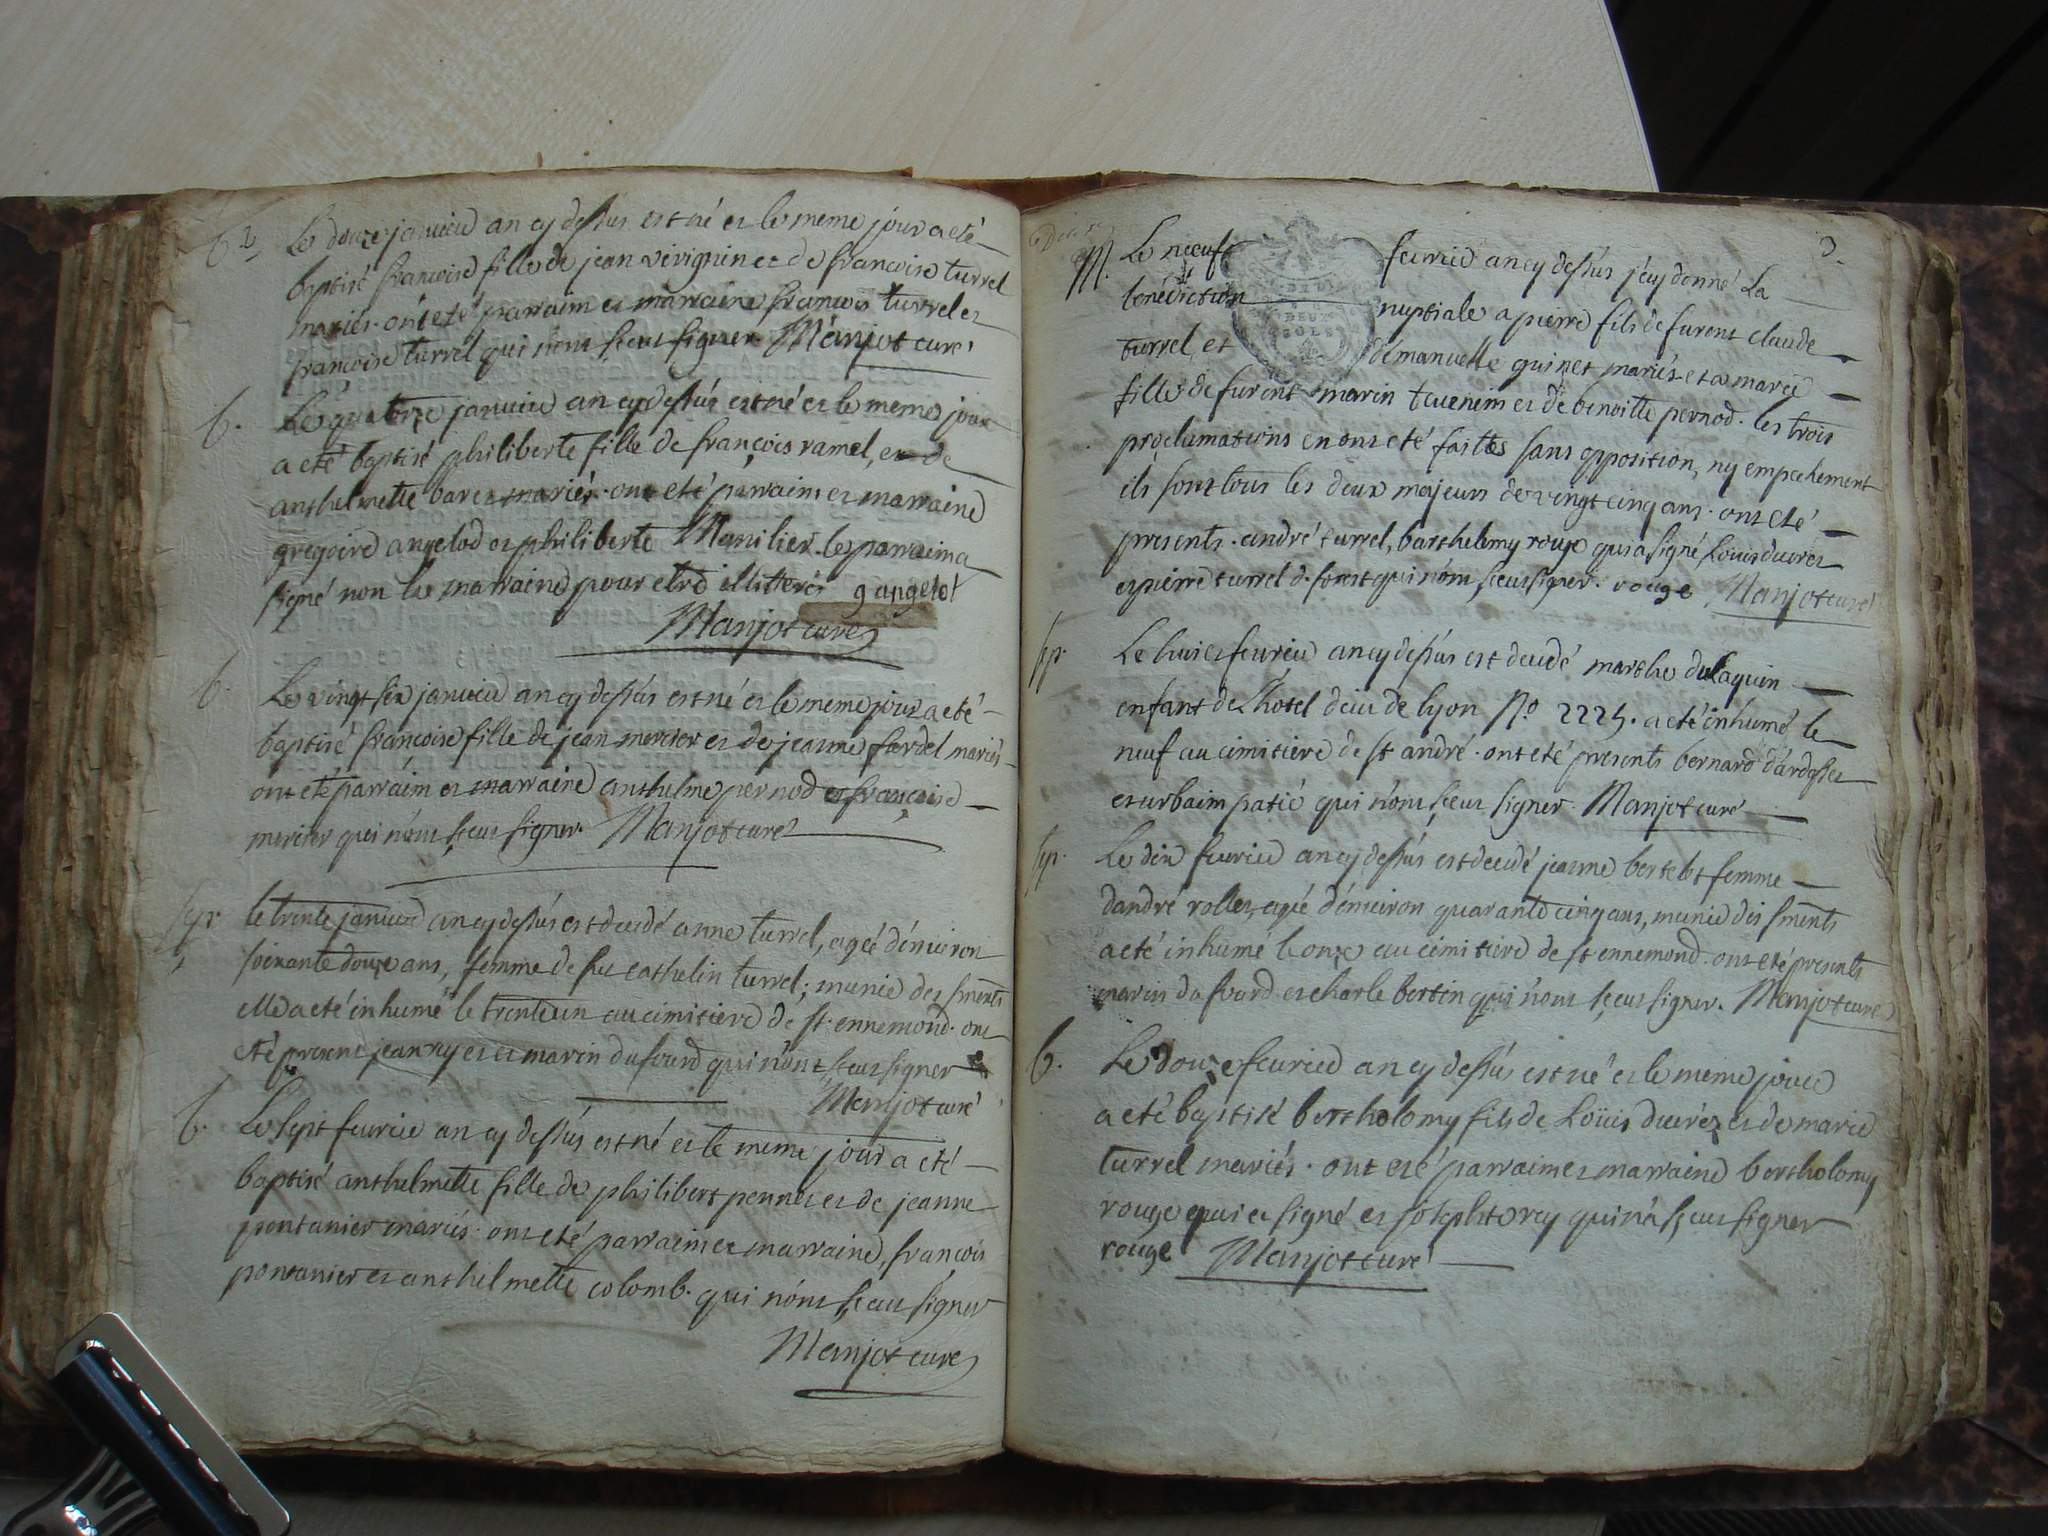 b. Le douze janvier an cy dessus est né et le meme jour a eté
baptisé francoise fille de jean vivignin et de francoise turrel
mariés. ont eté parraim et marraine francois turrel et
francoise turrel qui n'ont sçeu signer Manjot curé
b. Le quatorze janvier an cy dessus est né et le meme jour
a eté baptisé philiberte fille de françois ramel, et de
anthelmette baret mariés. ont eté parraim et marraine
gregoire angelod et philiberte Manilier. le parraim a
signé non la marraine pour etre illitterés g angelot
Manjot curé
b. Le vingt six janvier an cy dessus est né et le meme jour a eté
baptisé francoise fille de jean mercier et de jeanne fardel mariés
ont eté parraim et marraine anthelme pernod et françoise
mercier qui n'ont sçeu signer. Manjot curé
sep. le trente janvier an cy dessus est decedé anne turrel, agée d'environ
soixante douze ans, femme de feu cathelin turrel; munie des sments
elle a eté inhumé le trente un au cimitiere de st. ennemond. ont
eté present jean rey et marin dufourd qui n'ont sçeu signer
Manjot curé
b. Le sept fevrier an cy dessus est né et le meme jour a eté
baptisé anthelmette fille de philibert pennet et de jeanne
pontanier mariés. ont eté parraim et marraine, françois
pontanier et anthelmette colomb. qui n'ont sçeu signer
Manjot curé
3.
M. Le neuf fevrier an cy dessus j'ay donné La
benédiction nuptiale a pierre fils de furent claude
turrel, et d'émanuelle quinet mariés et a marie
fille de furent marin tevenim et de benoitte pernod. les trois
proclamations en ont eté faittes sans opposition, ny empechement
ils sont tous les deux majeurs de vingt cinq ans. ont eté
presents. andré turrel, barthelemy rouge qui a signé Louis ducret
et pierre turrel d. forest qui n'ont sçeu signer. rouge Manjot curé
sep. Le huit fevrier an cy dessus est decedé marthe dulaquin
enfant de L'hotel dieu de lyon No 2225. a eté inhumé le
neuf au cimitiere de st andré. ont eté presents bernard d'ardosset
et urbaim patié qui n'ont sçeu signer. Manjot curé
sep. Le dix fevrier an cy dessus est decedé jeanne bertelot femme
d'andré rollet, agé d'environ quarante cinq ans, munie des sments
a eté inhumé le onze au cimitiere de st ennemond. ont eté presents
marin dufourd et charle bertin qui n'ont sçeu signer. Manjot curé
b. Le douze fevrier an cy dessus est né et le meme jour
a eté baptisé bertholomy fils de Loüis ducrét et de marie
turrel mariés. ont eté parraim et marraine bertholomy
rouge qui a signé et josephte rey qui n'a sçeu signer
rouge Manjot curé